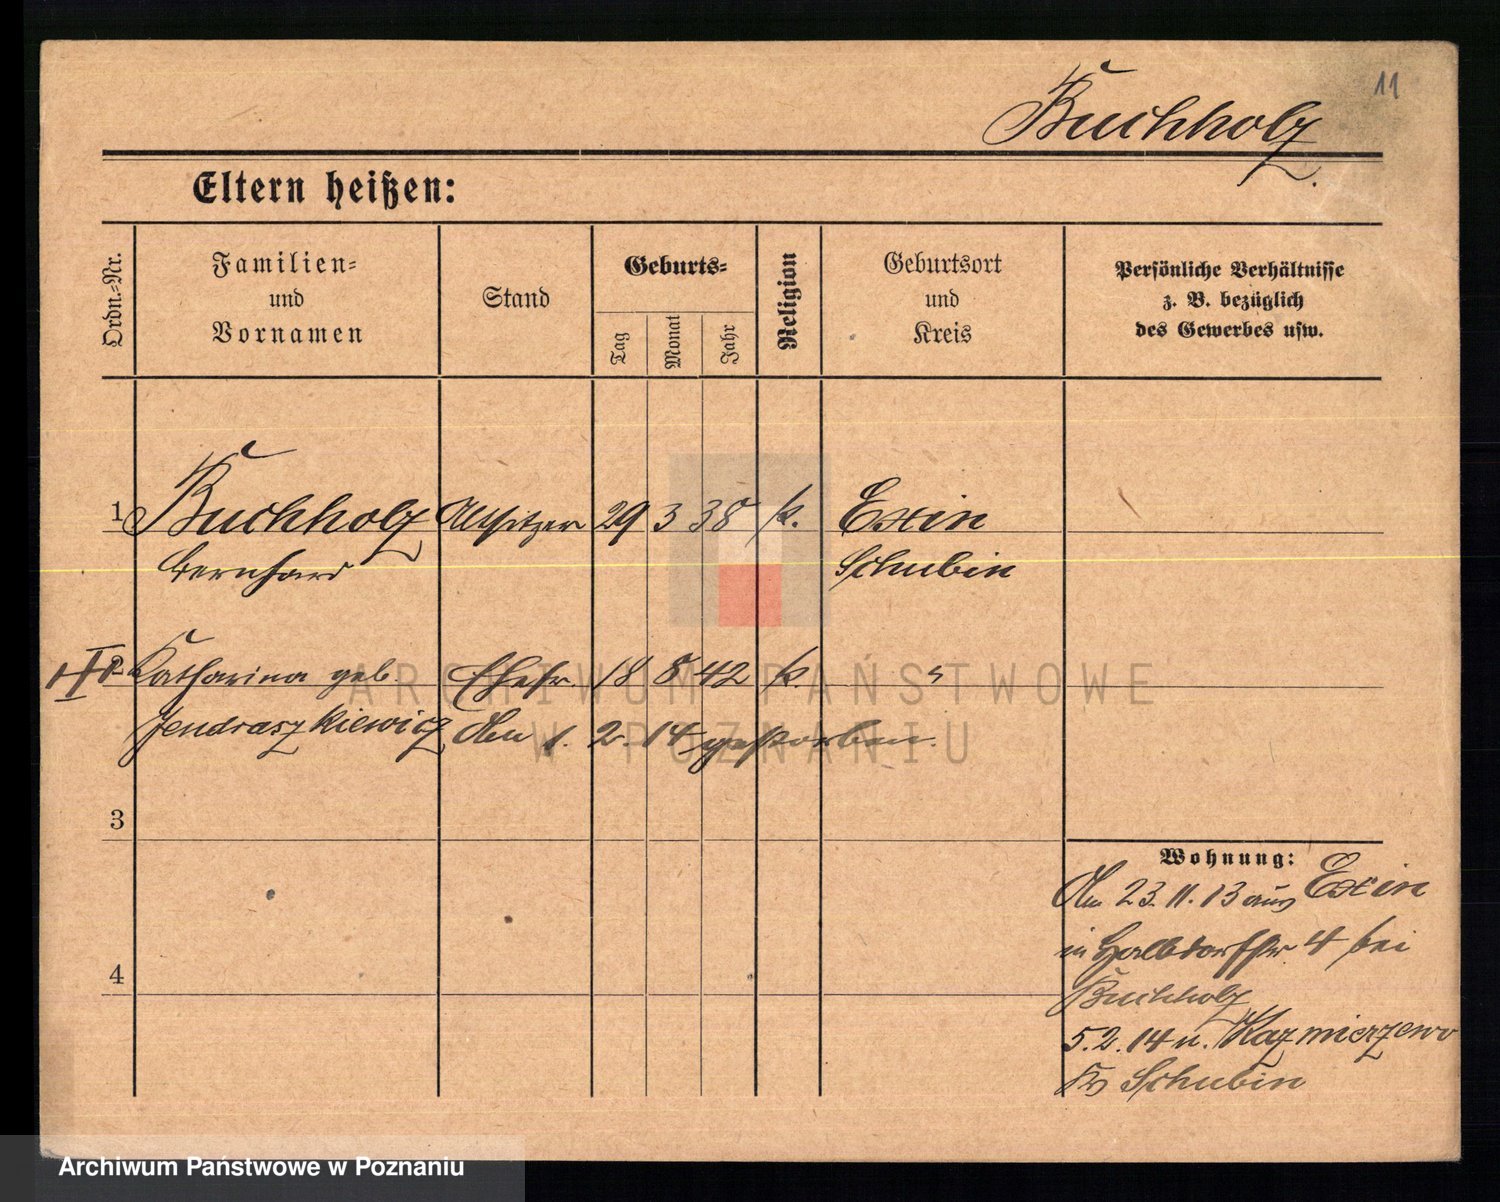 11
Buchholz.
Eltern heißen:
Ordn.=Nr.
Familien=
und
Vornamen
Stand
Geburts=
Tag
Monat
Jahr
Religion
Geburtsort
und
Kreis
Persönliche Verhältnisse
z. B. bezüglich
des Gewerbes usw.
1 Buchholz Altsitzer 29 3 38 k. Exin
Bernhard Schubin
2 Katharina geb. Ehefr. 18 8 42 k. "
Jendraszkiewicz Am 1. 2. 14 gestorben.
3
4
Wohnung:
Am 23. 11. 13 aus Exin
in Halbdorfstr 4 bei
Buchholz
5. 2. 14 n. Kazmierzewo
Kr Schubin
ARCHIWUM PAŃSTWOWE
W POZNANIU
Archiwum Państwowe w Poznaniu